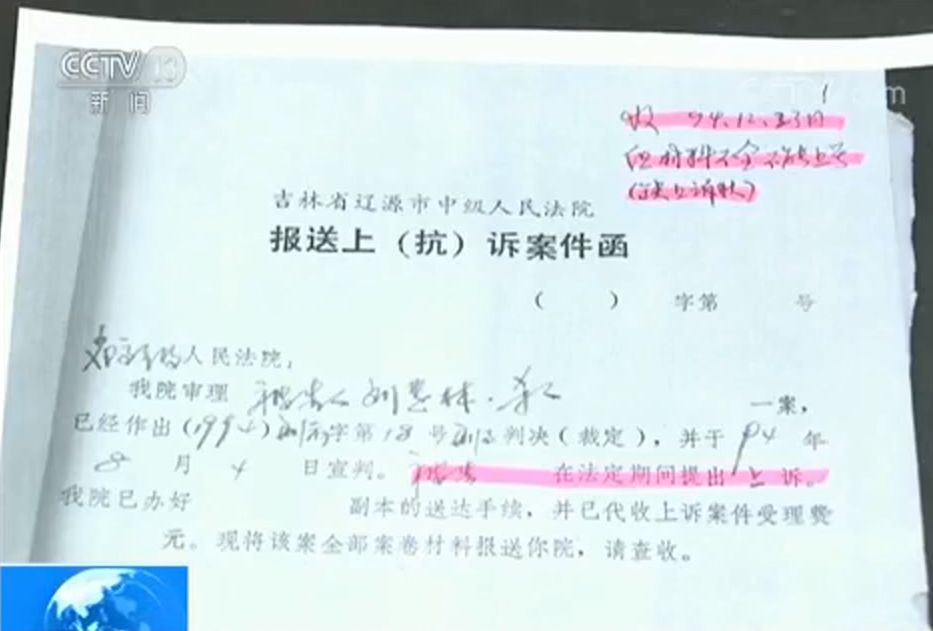 CCTV 13
新闻
1
收 94.12.23日
但材料不全不能上
(缺上诉状)
吉林省辽源市中级人民法院
报送上（抗）诉案件函
（ ） 字第 号
人民法院：
我院审理 被告人刘忠林·杀人 一案，
已经作出（1994）刑初字第18号刑事判决（裁定），并于94年
8月4日宣判。被告 在法定期间提出上诉。
我院已办好 副本的送达手续，并已代收上诉案件受理费
元。现将该案全部案卷材料报送你院，请查收。